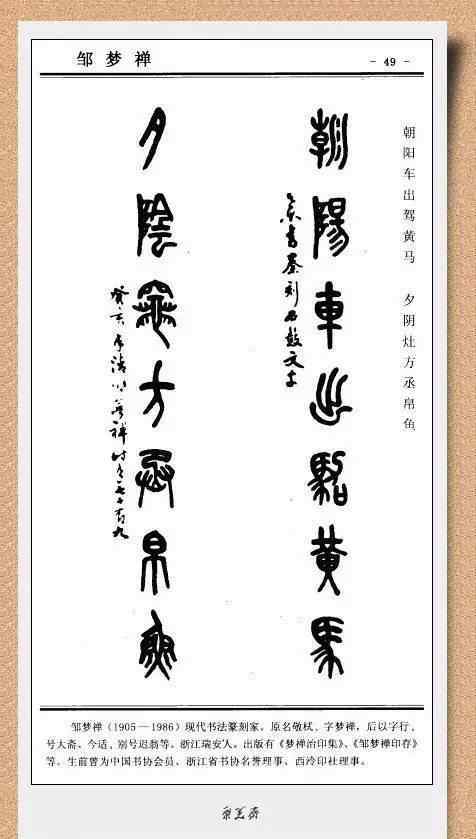 邹梦禅
- 49 -
朝阳车出驾黄马　夕阴灶方丞帛鱼
朝陽車出駕黃馬
書秦刻石鼓文字
夕陰竈方丞帛魚
癸亥年清 夢禪時年七十有九
邹梦禅（1905—1986）现代书法篆刻家。原名敬栻，字梦禅，后以字行，
号大斋、今适，别号迟翁等。浙江瑞安人。出版有《梦禅治印集》、《邹梦禅印存》
等。生前曾为中国书协会员、浙江省书协名誉理事、西泠印社理事。